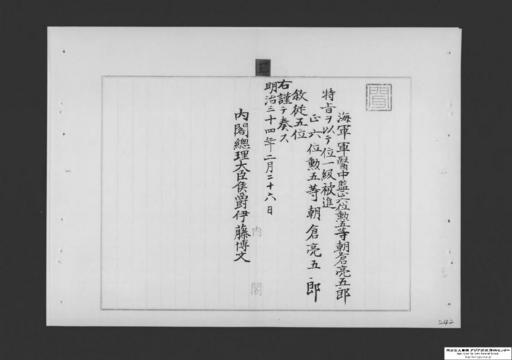 海軍軍醫中監正六位勲五等朝倉亮五郎
特旨ヲ以テ位一級被進
正六位勲五等朝倉亮五郎
敘從五位
右謹テ奏ス
明治三十四年二月二十六日
内閣總理大臣侯爵伊藤博文
内閣
242